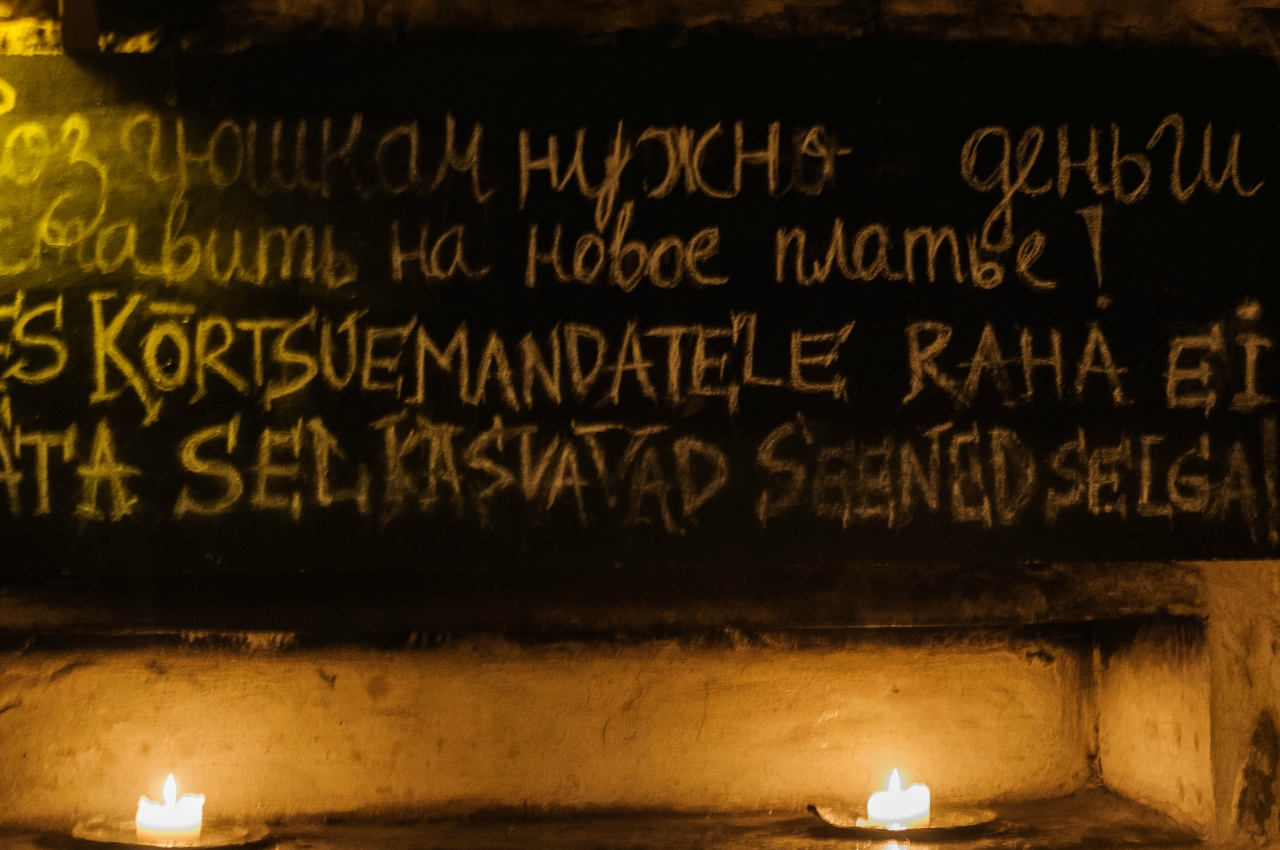 нужно деньги
ставить на новое платье!
KÕRTSUEMANDATELE RAHA EI
SEL KASVAVAD SEENED SELGA!